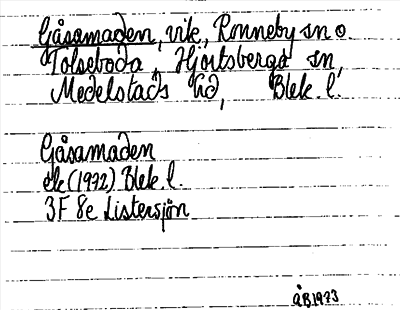 Gåsamaden, vik, Ronneby sn o.
Tolseboda, Hjortsberga sn,
Medelstads hd, Blek. l.
Gåsamaden
ek (1972) Blek. l.
3F 8e Listersjön
ÅB 1973